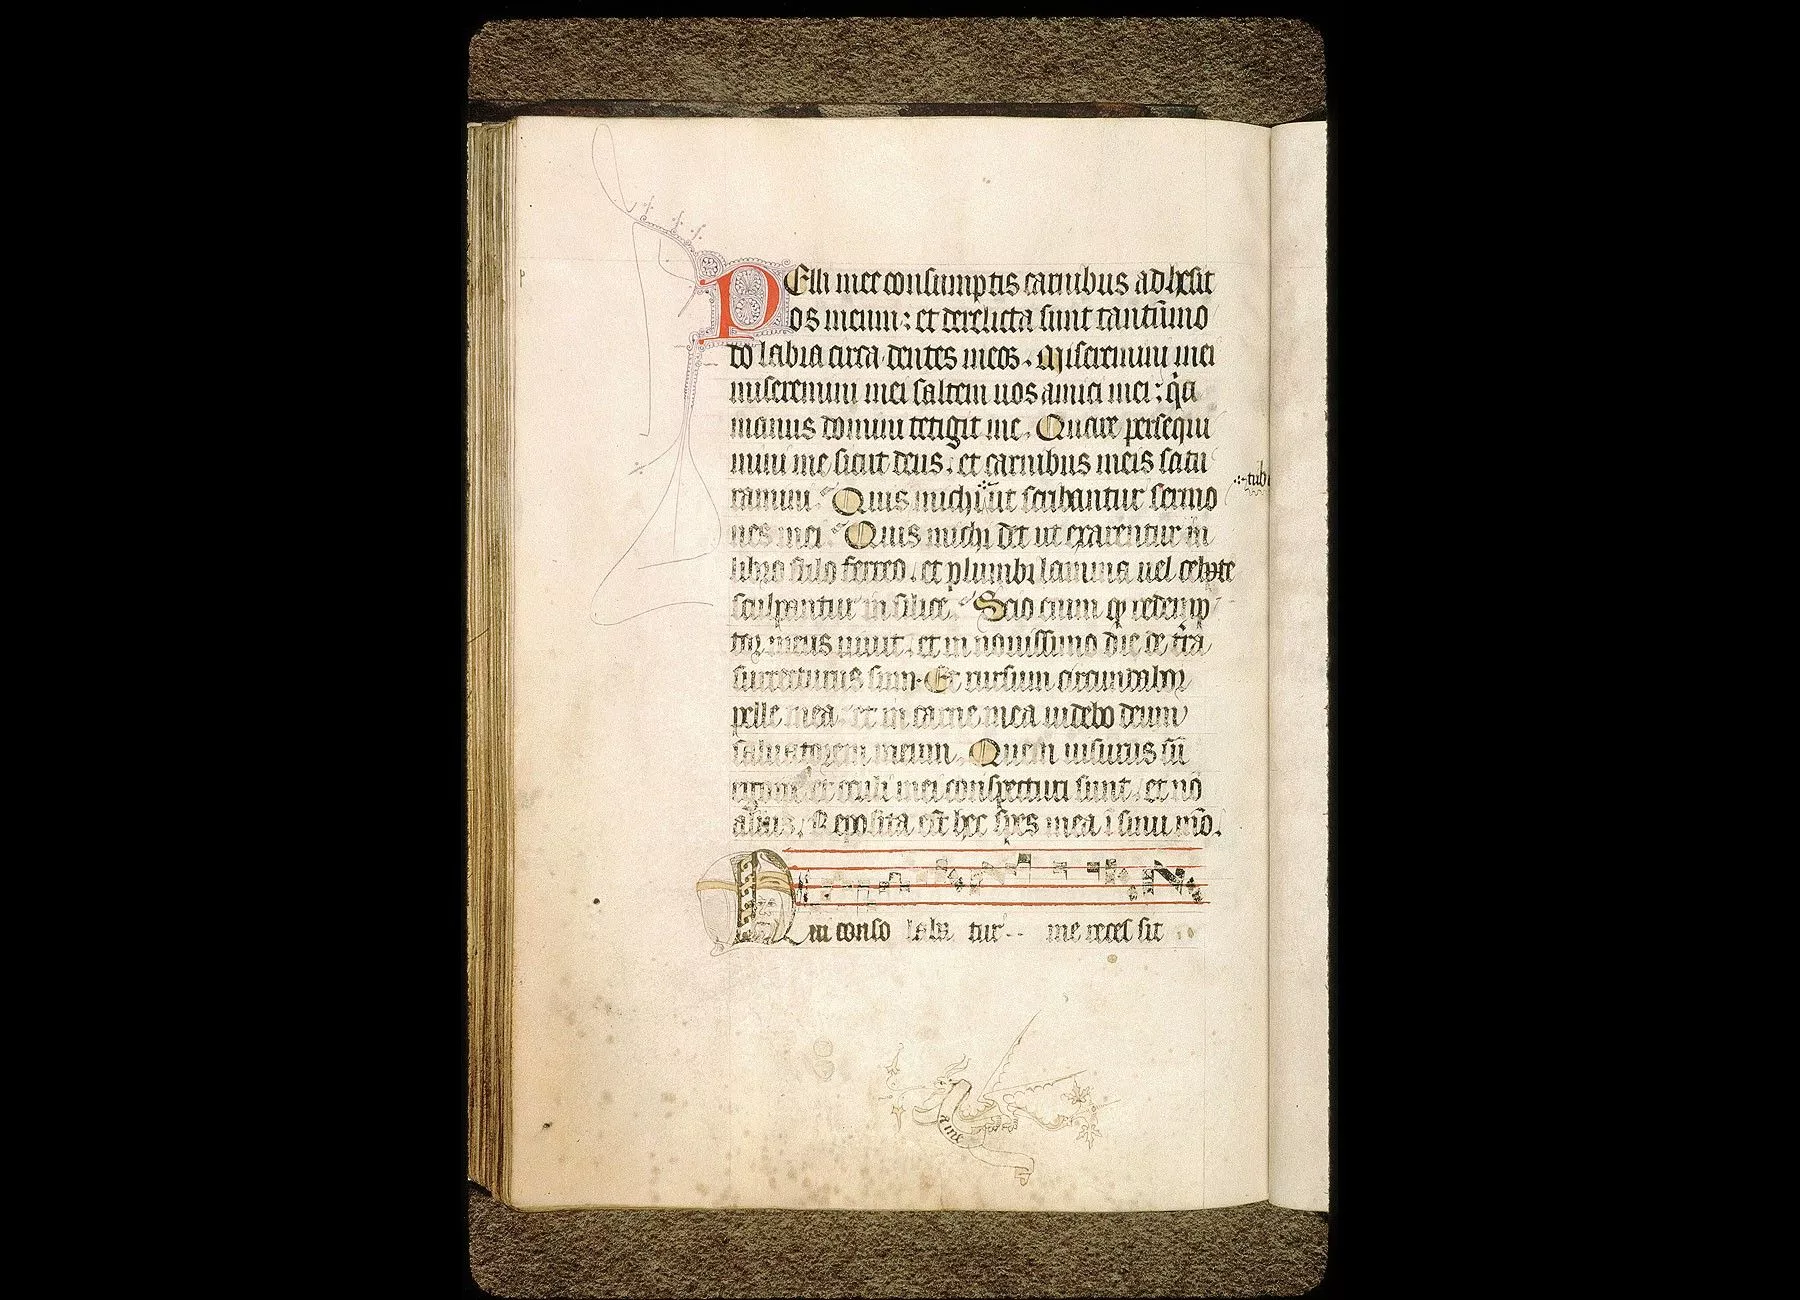 Pelli mee consumptis carnibus adhesit
os meum : et derelicta sunt tantūmo
do labia circa dentes meos . Miseremini mei
miseremini mei saltem uos amici mei : q̄a
manus domini tetigit me . Quare persequi
mini me sicut deus . et carnibus meis satu
ramini . Quis michi ut scribantur sermo
∴ tub
nes mei . Quis michi det ut exarentur in
libro stilo ferreo . et plumbi lamina uel celete
sculpantur in silice . Scio enim ꝙ redemp
toꝝ meus uiuit . et in nouissimo die de t̄ra
surrecturus sum . Et rursum circumdabor
pelle mea et in carne mea uidebo deum
saluatorem meum . Quem uisurus sū
et oculi mei conspecturi sunt . et nō
alius . Reposita est hec spes mea ī sinu mō .
Qui conso laba tur me reces sit
ame